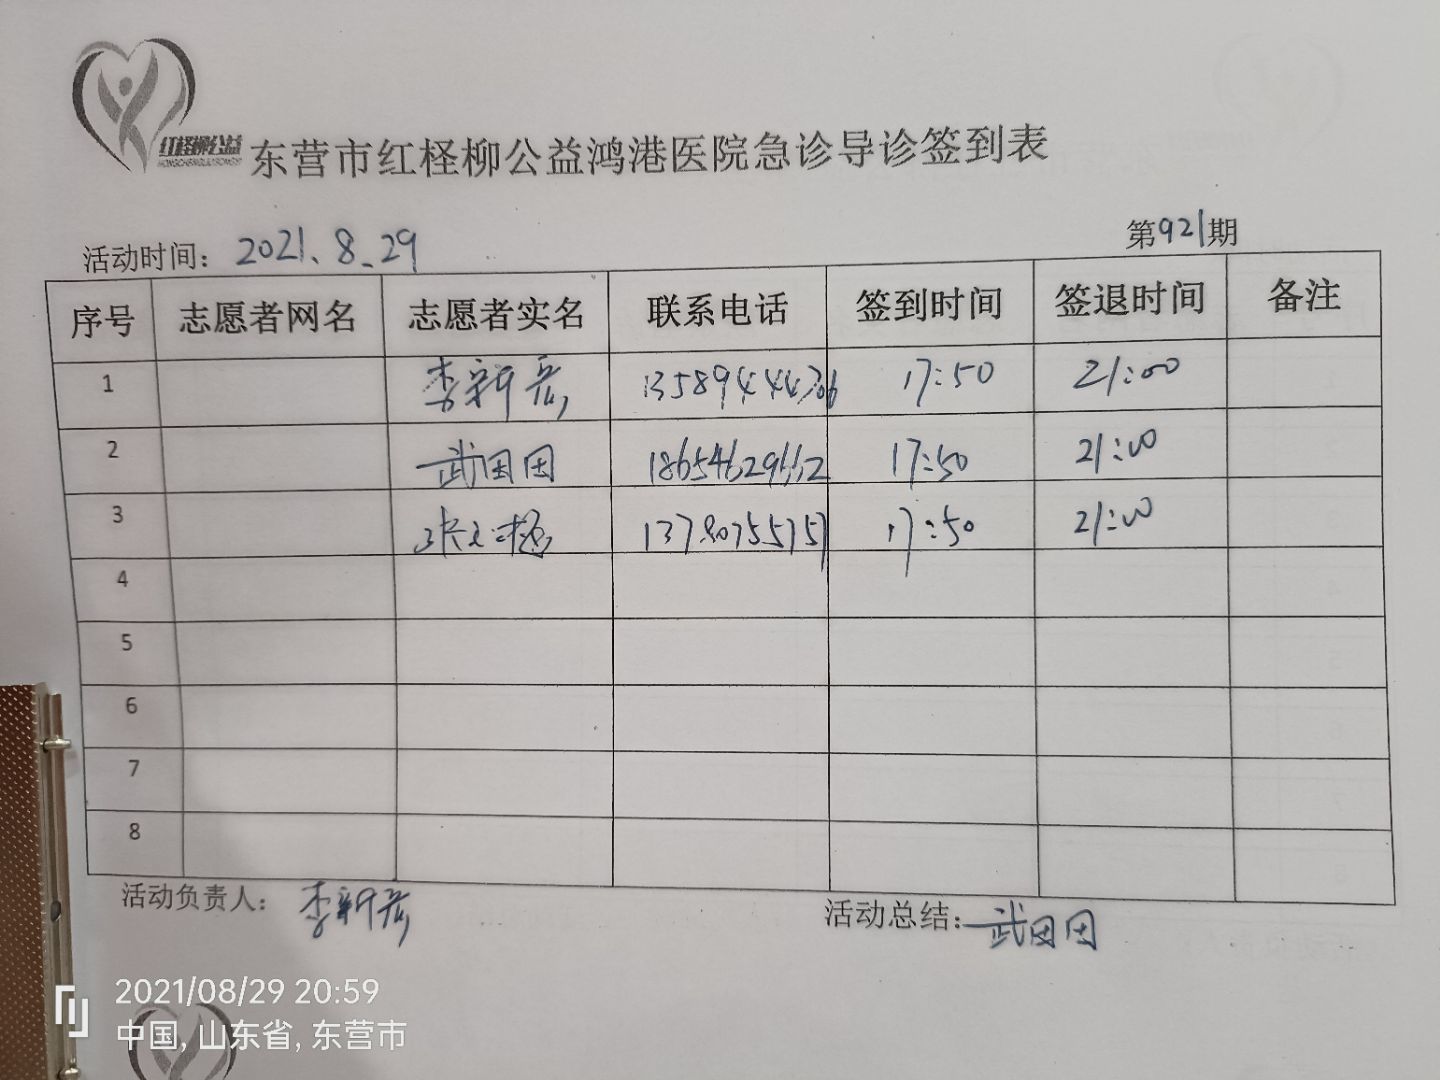 红柽柳公益
东营市红柽柳公益鸿港医院急诊导诊签到表
活动时间：2021.8.29 第921期
序号 志愿者网名 志愿者实名 联系电话 签到时间 签退时间 备注
1 李新 17:50 21:00
2 武团团 18654629662 17:50 21:00
3 张 17:50 21:00
4
5
6
7
8
活动负责人：李新 活动总结：武团团
2021/08/29 20:59
中国, 山东省, 东营市